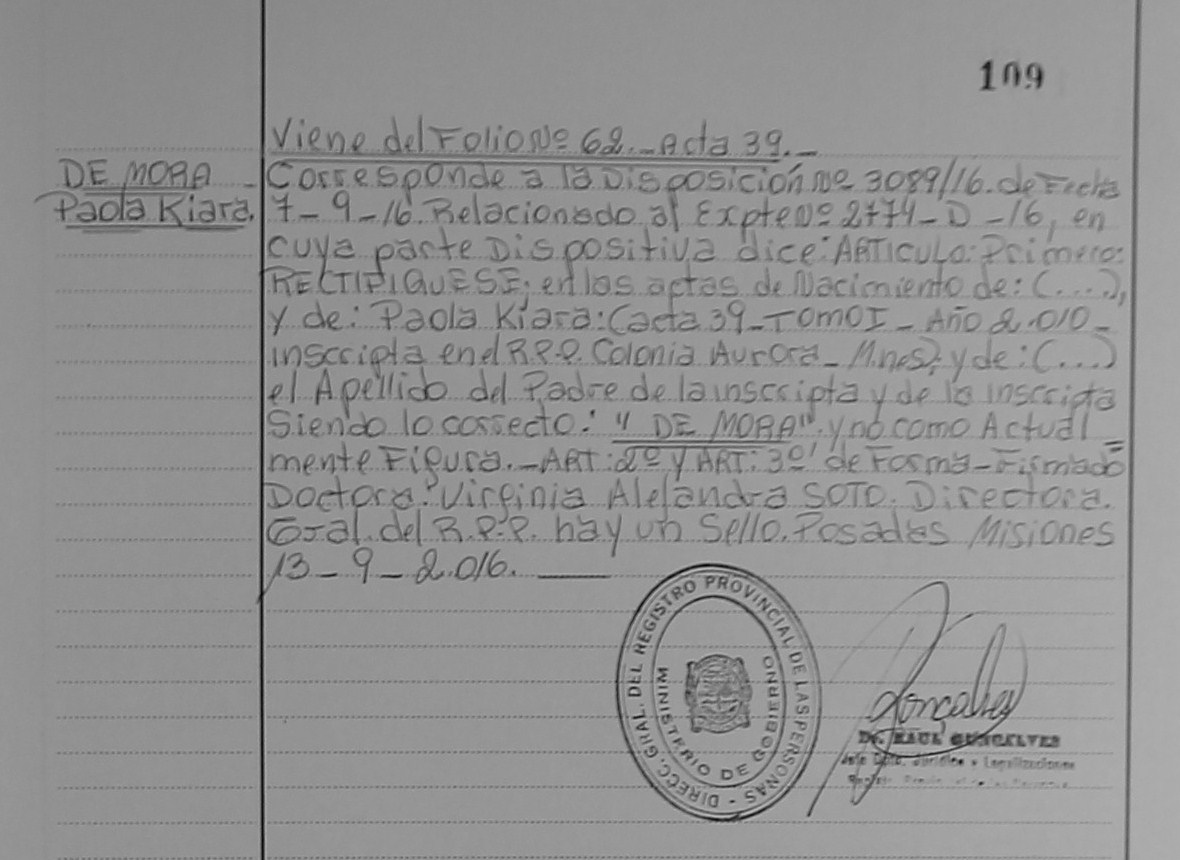 109
Viene del Folio Nº 62._ Acta 39._
DE MORA
Paola Kiara.
Corresponde a la Disposición Nº 3089/16. de Fecha
7_9_16. Relacionado al Expte Nº 2774_D_16, en
cuya parte Dispositiva dice: ARTICULO: Primero:
RECTIFIQUESE; en las actas de Nacimiento de: (....),
y de: Paola Kiara: (acta 39_TOMO I_ Año 2.010_
inscripta en el R.P.P. Colonia Aurora_ Mnes); y de: (...)
el Apellido del Padre de la inscripta y de la inscripta
Siendo lo correcto: "DE MORA". y no como Actual=
mente Figura._ ART: 2º y ART: 3º de Forma_ Firmado
Doctora: Virginia Alejandra SOTO. Directora.
Gral. del R.P.P. hay un Sello. Posadas Misiones
13_9_2.016.
DIRECC. GRAL. DEL REGISTRO PROVINCIAL DE LAS PERSONAS -
MINISTERIO DE GOBIERNO
Gonçalves
Dr. RAUL GONCALVES
Jefe Dpto. Jurídico y Legalizaciones